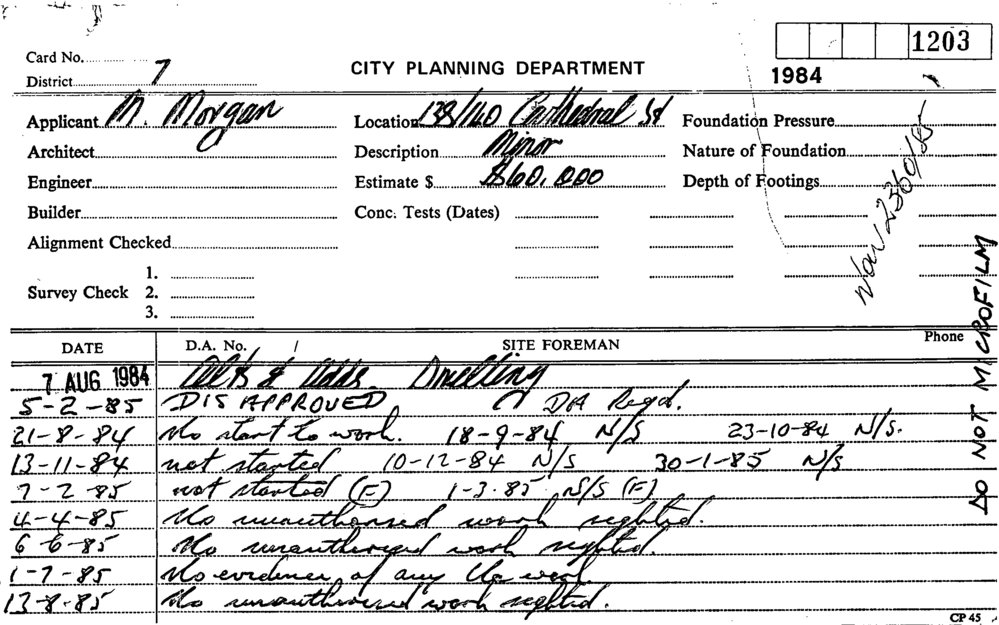 1203
1984
Card No.
District 7
CITY PLANNING DEPARTMENT
Applicant M. Morgan
Location 138/140 Cathedral St
Foundation Pressure
Architect
Description Minor
Nature of Foundation
Engineer
Estimate $ $60,000
Depth of Footings
Builder
Conc. Tests (Dates)
Alignment Checked
Survey Check
1.
2.
3.
2360/85
DO NOT MICROFILM
DATE
D.A. No. /
SITE FOREMAN
Phone
7 AUG 1984 Alts & Adds. Dwelling
5-2-85 DISAPPROVED DA Reqd.
21-8-84 No start to work. 18-9-84 N/S 23-10-84 N/S.
13-11-84 not started 10-12-84 N/S 30-1-85 N/S
7-2-85 not started (F) 1-3-85 N/S (F)
4-4-85 No unauthorised work sighted.
6-6-85 No unauthorised work sighted.
1-7-85 No evidence of any Ua work
13-8-85 No unauthorised work sighted.
CP 45